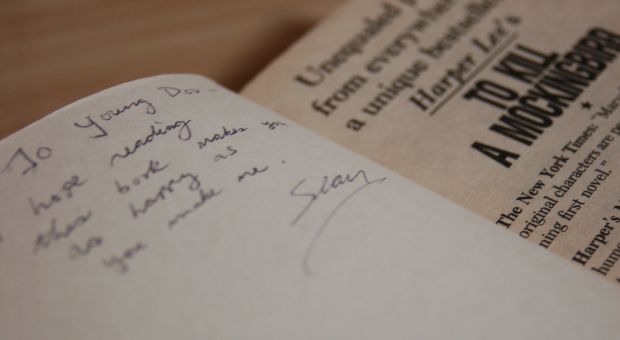 To Young Do
hope reading
this book makes you
as happy as
you make me.
Sean
Unequaled
from everywhere
a unique bestseller
Harper Lee's
TO KILL
A MOCKINGBIRD
The New York Times: "
original characters are
ning first novel."
Harper's